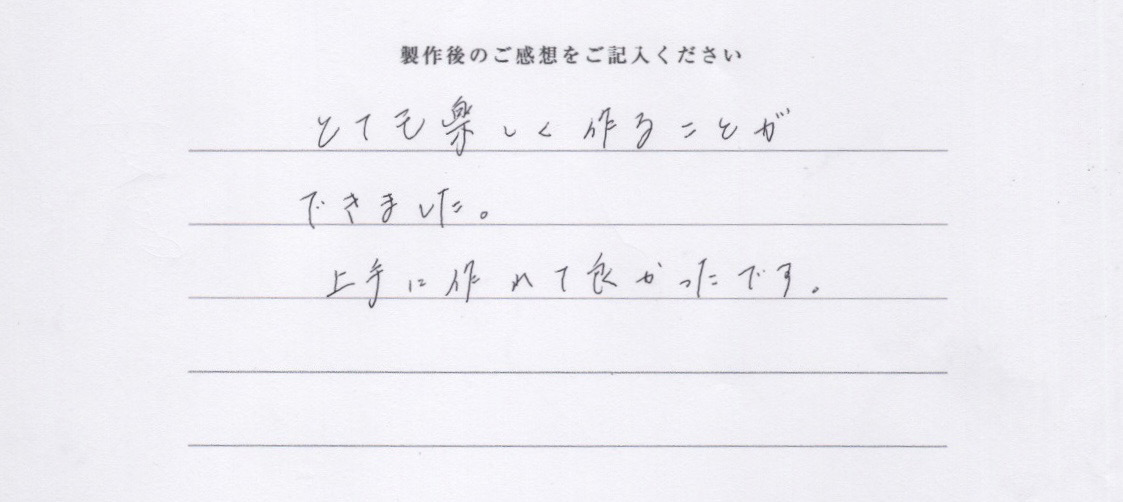 製作後のご感想をご記入ください
とても楽しく作ることが
できました。
上手に作れて良かったです。